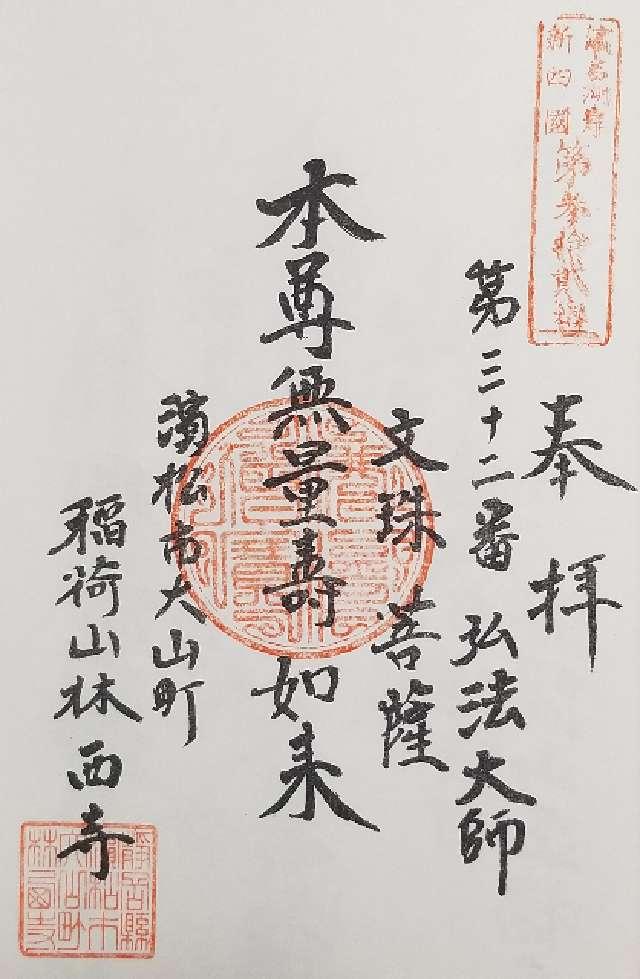 濱名湖岸
新四國
第参拾貳番
奉拝
第三十二番 弘法大師
文珠菩薩
本尊無量壽如来
濱松市大山町
稲荷山林西寺
静岡縣
濱松市
大山町
林西寺